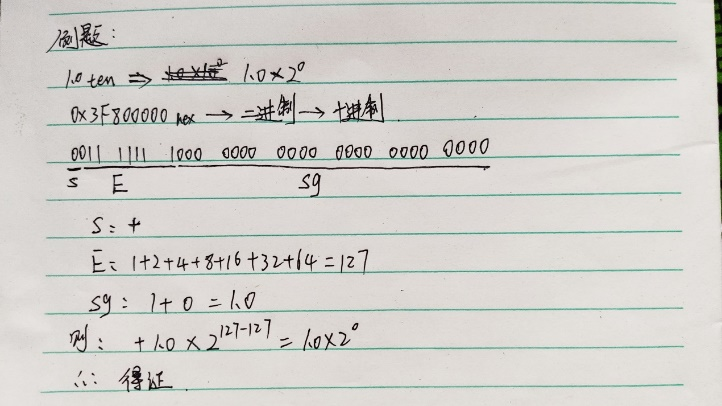 例题:
1.0 ten ⇒ 1.0×2⁰
0x3F800000 hex → 二进制 → 十进制
0011 1111 1000 0000 0000 0000 0000 0000
S E Sg
S: +
E: 1+2+4+8+16+32+64=127
Sg: 1+0=1.0
则: +1.0×2¹²⁷⁻¹²⁷=1.0×2⁰
∴: 得证